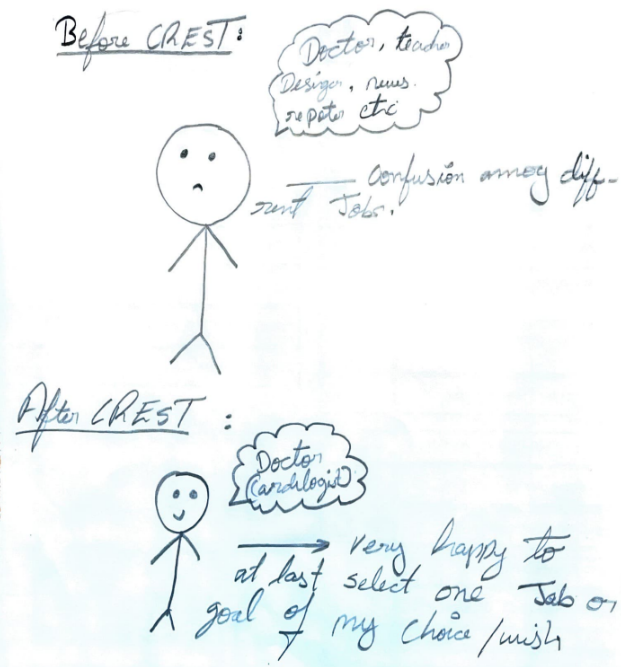 Before CREST:
Doctor, teacher
Desiger, news.
repoter etc
confusion amog diff-
rent Jobs.
After CREST :
Doctor
(cardilogist)
very happy to
at last select one Job or
goal of my choice / wish